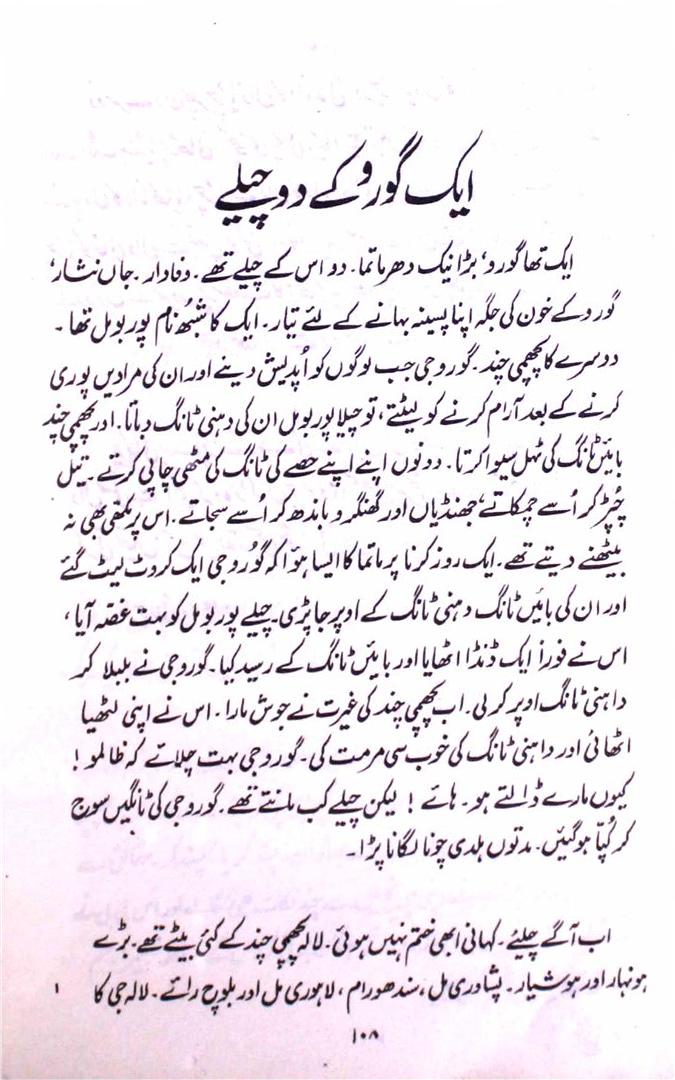 ایک گورو کے دو چیلے
ایک تھا گورو، بڑا نیک دھرماتما۔ دو اس کے چیلے تھے۔ وفادار۔ جاں نثار،
گورو کے خون کی جگہ اپنا پسینہ بہانے کے لئے تیار۔ ایک کا شبُھ نام پوربو مل تھا۔
دوسرے کا پچھمی چند۔ گورو جی جب لوگوں کو اُپدیش دینے اور ان کی مرادیں پوری
کرنے کے بعد آرام کرنے کو لیٹتے، تو چیلا پوربو مل ان کی دہنی ٹانگ دباتا۔ اور پچھمی چند
بائیں ٹانگ کی ٹہل سیوا کرتا۔ دونوں اپنے اپنے حصے کی ٹانگ کی مٹھی چاپی کرتے۔ تیل
چپڑ کر اُسے چمکاتے، جھنڈیاں اور گھنگرو باندھ کر اُسے سجاتے۔ اس پر مکھی بھی نہ
بیٹھنے دیتے تھے۔ ایک روز کرنا پرماتما کا ایسا ہوا کہ گورو جی ایک کروٹ لیٹ گئے
اور ان کی بائیں ٹانگ دہنی ٹانگ کے اوپر جا پڑی۔ چیلے پوربو مل کو بہت غصہ آیا،
اس نے فوراً ایک ڈنڈا اٹھایا اور بائیں ٹانگ کے رسید کیا۔ گورو جی نے بلبلا کر
داہنی ٹانگ اوپر کر لی۔ اب پچھمی چند کی غیرت نے جوش مارا۔ اس نے اپنی لٹھیا
اٹھائی اور داہنی ٹانگ کی خوب سی مرمت کی۔ گورو جی بہت چلائے کہ ظالمو!
کیوں مارے ڈالتے ہو۔ ہائے! لیکن چیلے کب مانتے تھے۔ گورو جی کی ٹانگیں سوج
کر کُپّا ہو گئیں۔ مدتوں ہلدی چونا لگانا پڑا۔
اب آگے چلیئے۔ کہانی ابھی ختم نہیں ہوئی۔ لالہ پچھمی چند کے کئی بیٹے تھے۔ بڑے
ہونہار اور ہوشیار۔ پشاوری مل، سندھو رام، لاہوری مل اور بلوچ رائے۔ لالہ جی کا
۱۰۸